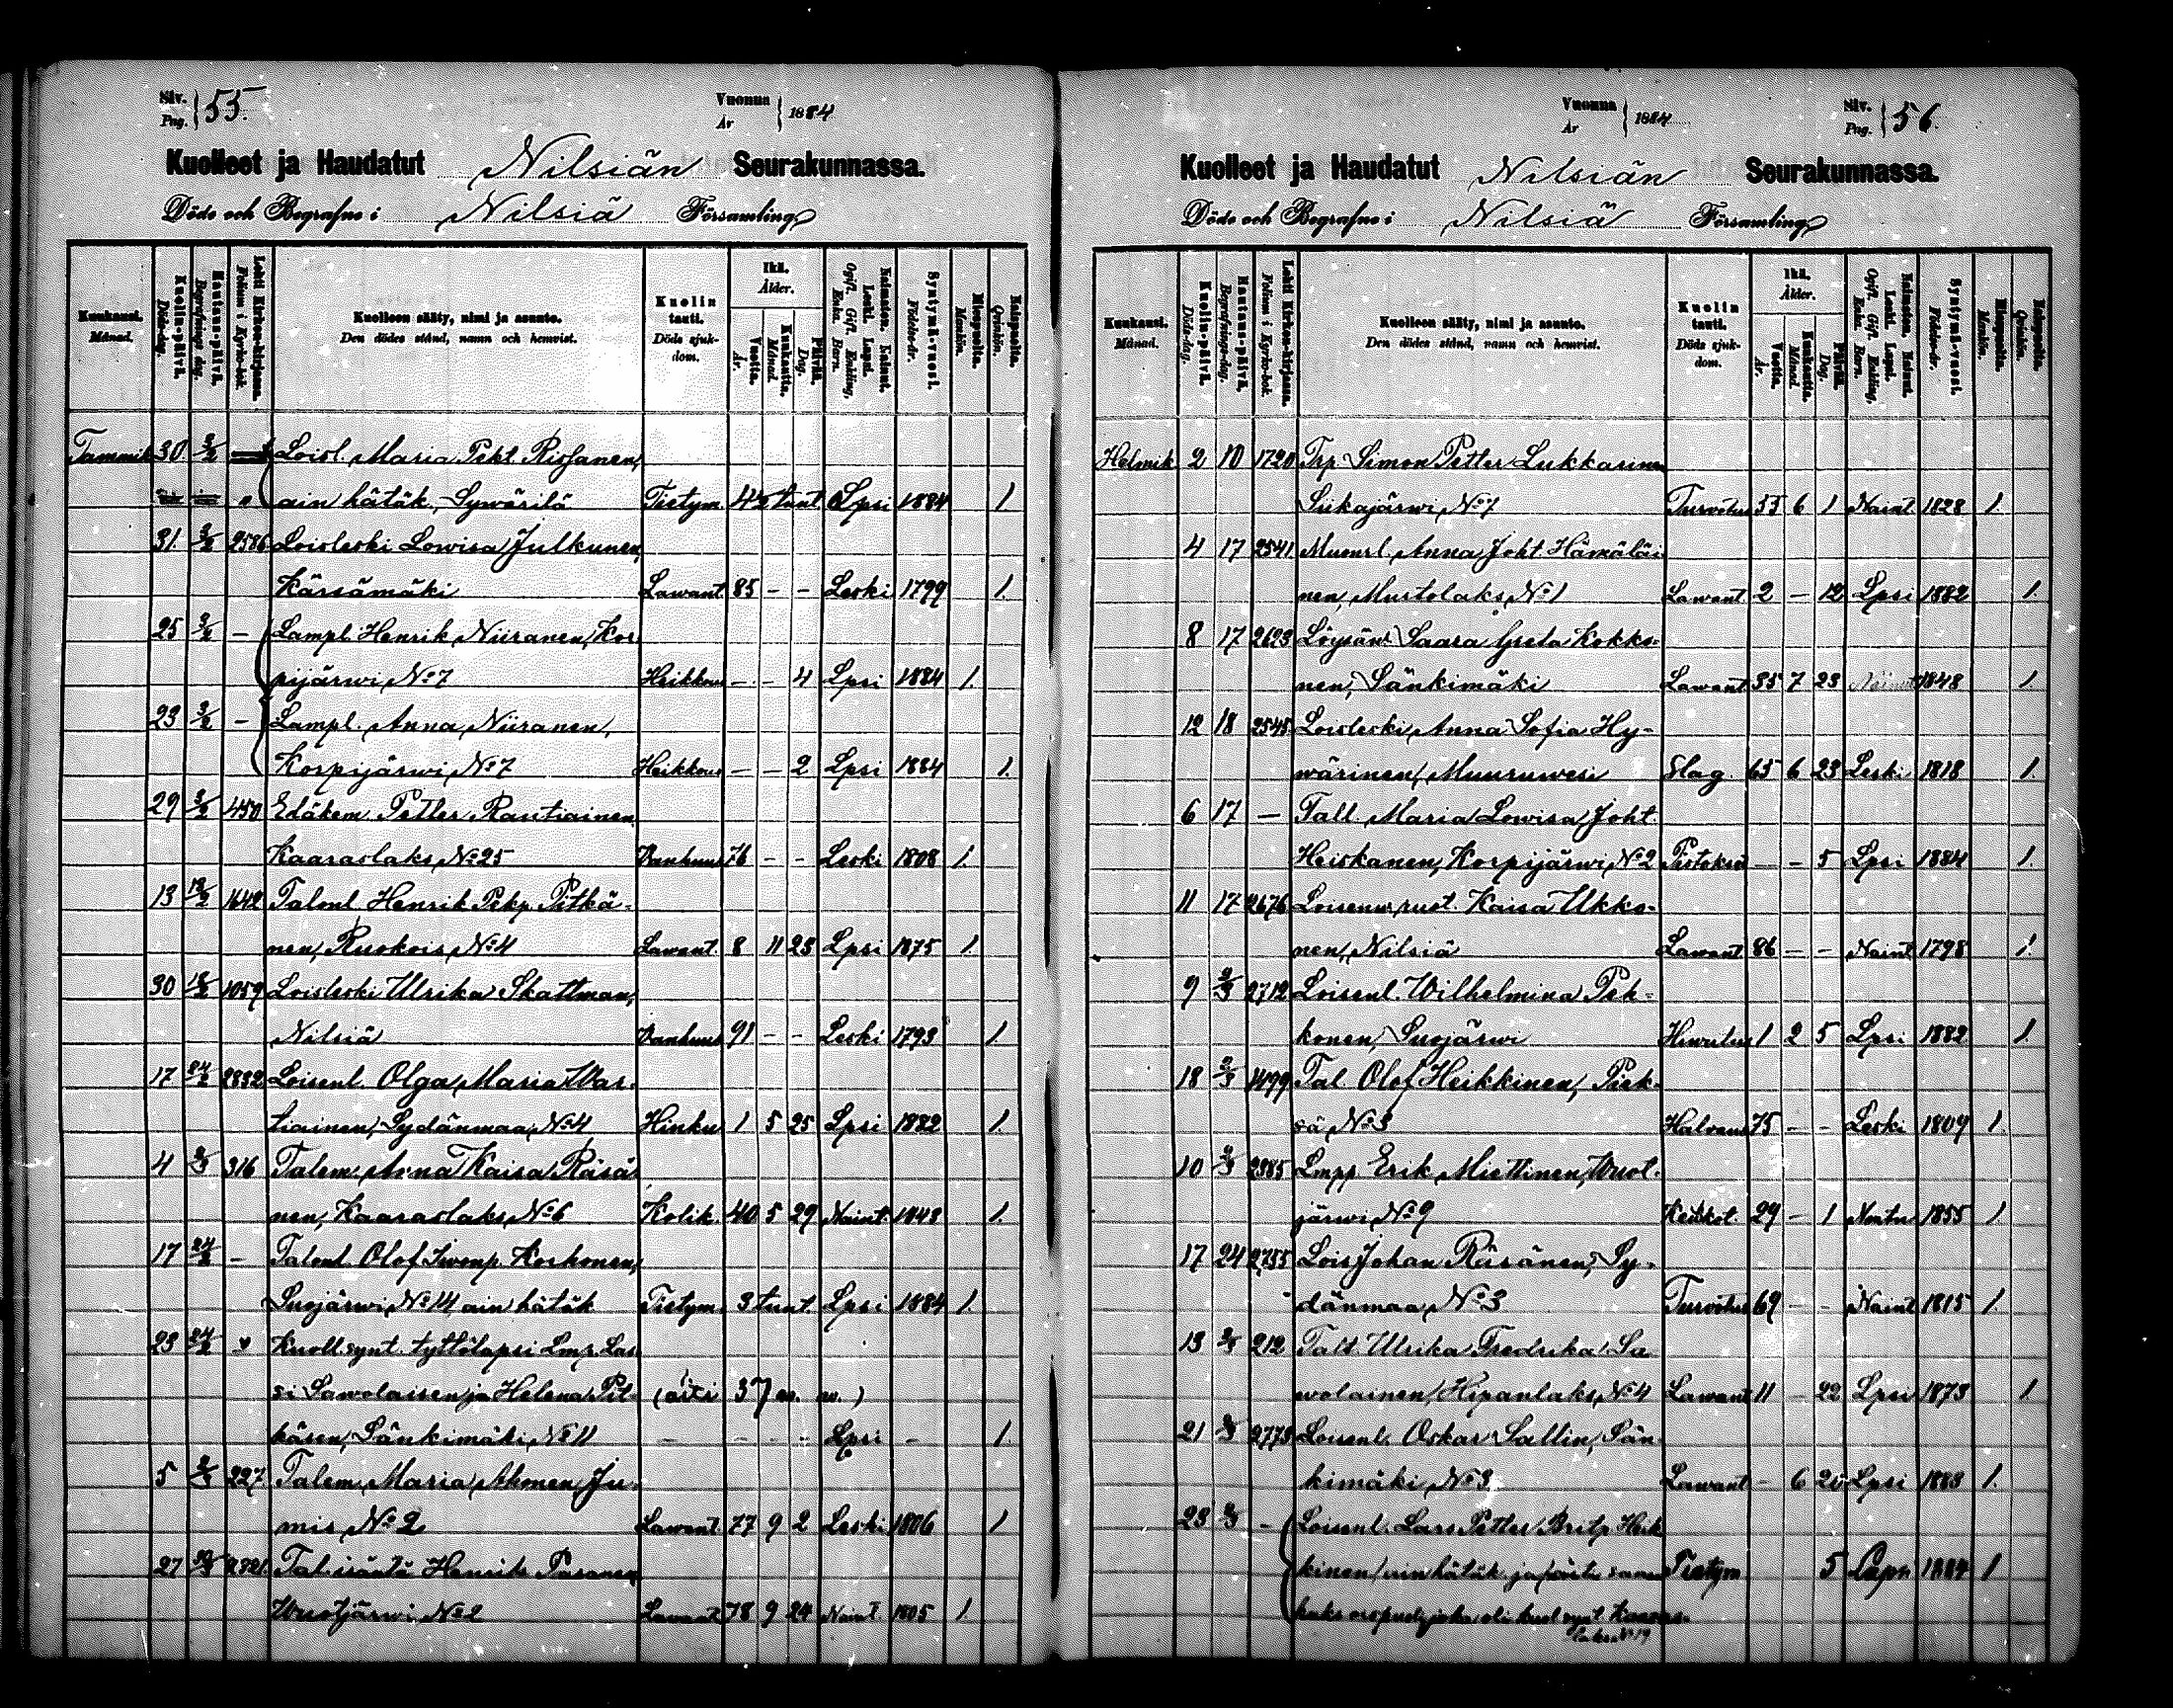 Siv. Pag. 55. Vuonna År 1884
Kuolleet ja Haudatut Nilsiän Seurakunnassa.
Döde och Begrafne i Nilsiä Församling
Kuukausi. Månad.
Kuolin-päivä. Döds-dag.
Hautaus-päivä. Begrafnings dag.
Lehti Kirkon-kirjassa. Folium i Kyrko-bok.
Kuolleen sääty, nimi ja asunto.
Den dödes stånd, namn och hemvist.
Kuolin tauti. Döds sjuk-dom.
Ikä. Ålder.
Vuotta. År.
Kuukautta. Månad.
Päivää. Dag.
Naimaton. Nainut. Leski. Lapsi.
Ogift. Gift. Enkling. Enka. Barn.
Syntymä-vuosi. Födelse-år.
Miespuolia. Mankön.
Naispuolia. Qvinkön.
Tammik 30 3/2 Loisl. Maria Pekt. Rissanen,
" ain hätäk, Sywärilä Tietym. 42 tunt. Lpsi 1884 1
31. 3/2 2586 Loisleski Lowisa Julkunen,
Kärsämäki Lawant. 85 - - Leski 1799 1.
25 3/2 - Lampl. Henrik Niiranen, Kor
pijärwi, No 7 Heikkous - - 4 Lpsi 1884 1.
23 3/2 - Lampl. Anna Niiranen,
Korpijärwi, No 7 Heikkous - - 2 Lpsi 1884 1.
29 3/2 450 Eläkem. Petter Rautiainen
Kaaraslaks, No 25 Vanhuus 76 - - Leski 1808 1.
13 1642 Talonl. Henrik Pekp. Pitkä-
nen, Ruokois, No 4 Lawant. 8 11 23 Lpsi 1875 1.
30 1059 Loisleski Ulrika Skattman,
Nilsiä Vanhuus 91 - - Leski 1793 1.
17 24/2 Loisenl. Olga Maria Was-
tiainen, Sydänmaa, No 4 Hinku 1 5 25 Lpsi 1882 1.
4 316 Talem. Anna Kaisa Räsä-
nen, Kaaraslaks, No 6 Kolik. 40 5 29 Naint. 1843 1.
17 24/2 - Talonl. Olof Koskonen,
Suojärwi, No 14, ain hätäk Tietym. 3 tunt. Lpsi 1884 1.
23 24/2 " Kuoll. synt. tyttölapsi Lmp. Las
si Sawolaisen ja Helena Pit- (äiti 37 w. w.)
käsen, Sänkimäki, No 11 - - - - Lpsi - 1.
5 227 Talem. Maria Ahonen, Ju-
mis, No 2 Lawant. 77 9 2 Leski 1806 1
27 2321. Tal. isäntä Henrik Pasanen,
No 2 Lawant. 78 9 24 Naint. 1805 1.
Vuonna År 1884 Siv. Pag. 56.
Kuolleet ja Haudatut Nilsiän Seurakunnassa.
Döde och Begrafne i Nilsiä Församling
Kuukausi. Månad.
Kuolin-päivä. Döds-dag.
Hautaus-päivä. Begrafnings-dag.
Lehti Kirkon-kirjassa. Folium i Kyrko-bok.
Kuolleen sääty, nimi ja asunto.
Den dödes stånd, namn och hemvist.
Kuolin tauti. Döds sjuk-dom.
Ikä. Ålder.
Vuotta. År.
Kuukautta. Månad.
Päivää. Dag.
Naimaton. Nainut. Leski. Lapsi.
Ogift. Gift. Enkling. Enka. Barn.
Syntymä-vuosi. Födelse-år.
Miespuolia. Mankön.
Naispuolia. Qvinkön.
Helmik 2 10 1720 Trp. Simon Petter Lukkarinen
Siikajärwi, No 7 Turvotus 55 6 1 Naint. 1828 1.
4 17 2541. Anna Joht. Hämäläi
nen, Mustolaks, No 1 Lawant 2 - 12 Lpsi 1882 1.
8 17 2693 Saara Greta Kokko-
nen, Sänkimäki Lawant 35 7 23 Nainut 1848 1.
12 18 2545. Loisleski Anna Sofia Hy-
wärinen, Muuruwesi Slag. 65 6 23 Leski 1818 1.
6 17 - Tall. Maria Lowisa Joht.
Heiskanen, Korpijärwi, No 2 Pistoksia - - 5 Lpsi 1884 1.
11 17 2676 Kaisa Ukko-
nen, Nilsiä Lawant 86 - - Naint 1798 1.
9 2712 Loisenl. Wilhelmina Pek-
konen, Suojärwi 1 2 5 Lpsi 1882 1.
18 1499 Tal. Olof Heikkinen, Piek-
sä, No 3 Halvaus 75 - - Leski 1809 1.
10 2385 Lmpp. Erik Miettinen, Wuot-
järwi, No 9 29 - 1 1855 1
17 24 2755 Lois Johan Räsänen, Sy-
dänmaa, No 3 Turvotus 69 - - Naint 1815 1.
13 212 Talt. Ulrika Fredrika Sa
wolainen, Hipanlaks, No 4 Lawant 11 - 22 Lpsi 1873 1
21 2773 Loisenl. Oskar Sallin, Sän-
kimäki, No 3 Lawant - 6 Lpsi 1883 1.
23 - Loisenl. Lars Petter Heik
kinen, ain hätäk. ja Tietym 5 Lapsi 1884 1
No 19